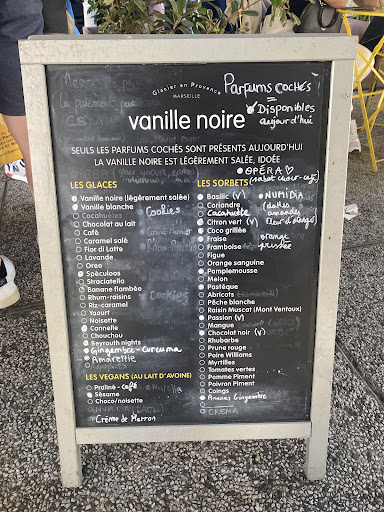 Glacier en Provence
MARSEILLE
vanille noire
Parfums cochés
Disponibles
aujourd'hui
SEULS LES PARFUMS COCHÉS SONT PRÉSENTS AUJOURD'HUI
LA VANILLE NOIRE EST LÉGÈREMENT SALÉE, IODÉE
OPÉRA ♡
LES GLACES
Vanille noire (légèrement salée)
Vanille blanche
Cacahuètes
Cookies
Chocolat au lait
Café
Caramel salé
Fior di Latte
Lavande
Oreo
Spéculoos
Straciatella
Banane flambée
Rhum-raisins
Cookies
Riz-caramel
Yaourt
Noisette
Cannelle
Chouchou
Beyrouth nights
Gingembre-curcuma
Amarettie
LES VEGANS (AU LAIT D'AVOINE)
Praliné-café
Sésame
Choco/noisette
Crème de Marron
LES SORBETS
Basilic (V)
Coriandre
Cacahuète
Citron vert (V)
Coco grillée
Fraise
Framboise
Figue
Orange sanguine
Pamplemousse
Melon
Pastèque
Abricots
Pêche blanche
Raisin Muscat (Mont Ventoux)
Passion (V)
Mangue
Chocolat noir (V)
Rhubarbe
Prune rouge
Poire Williams
Myrtilles
Tomates vertes
Pomme Piment
Poivron Piment
Coings
Ananas Gingembre
NUMIDIA
(dattes
amandes
fleur d'oranger)
orange
pressée